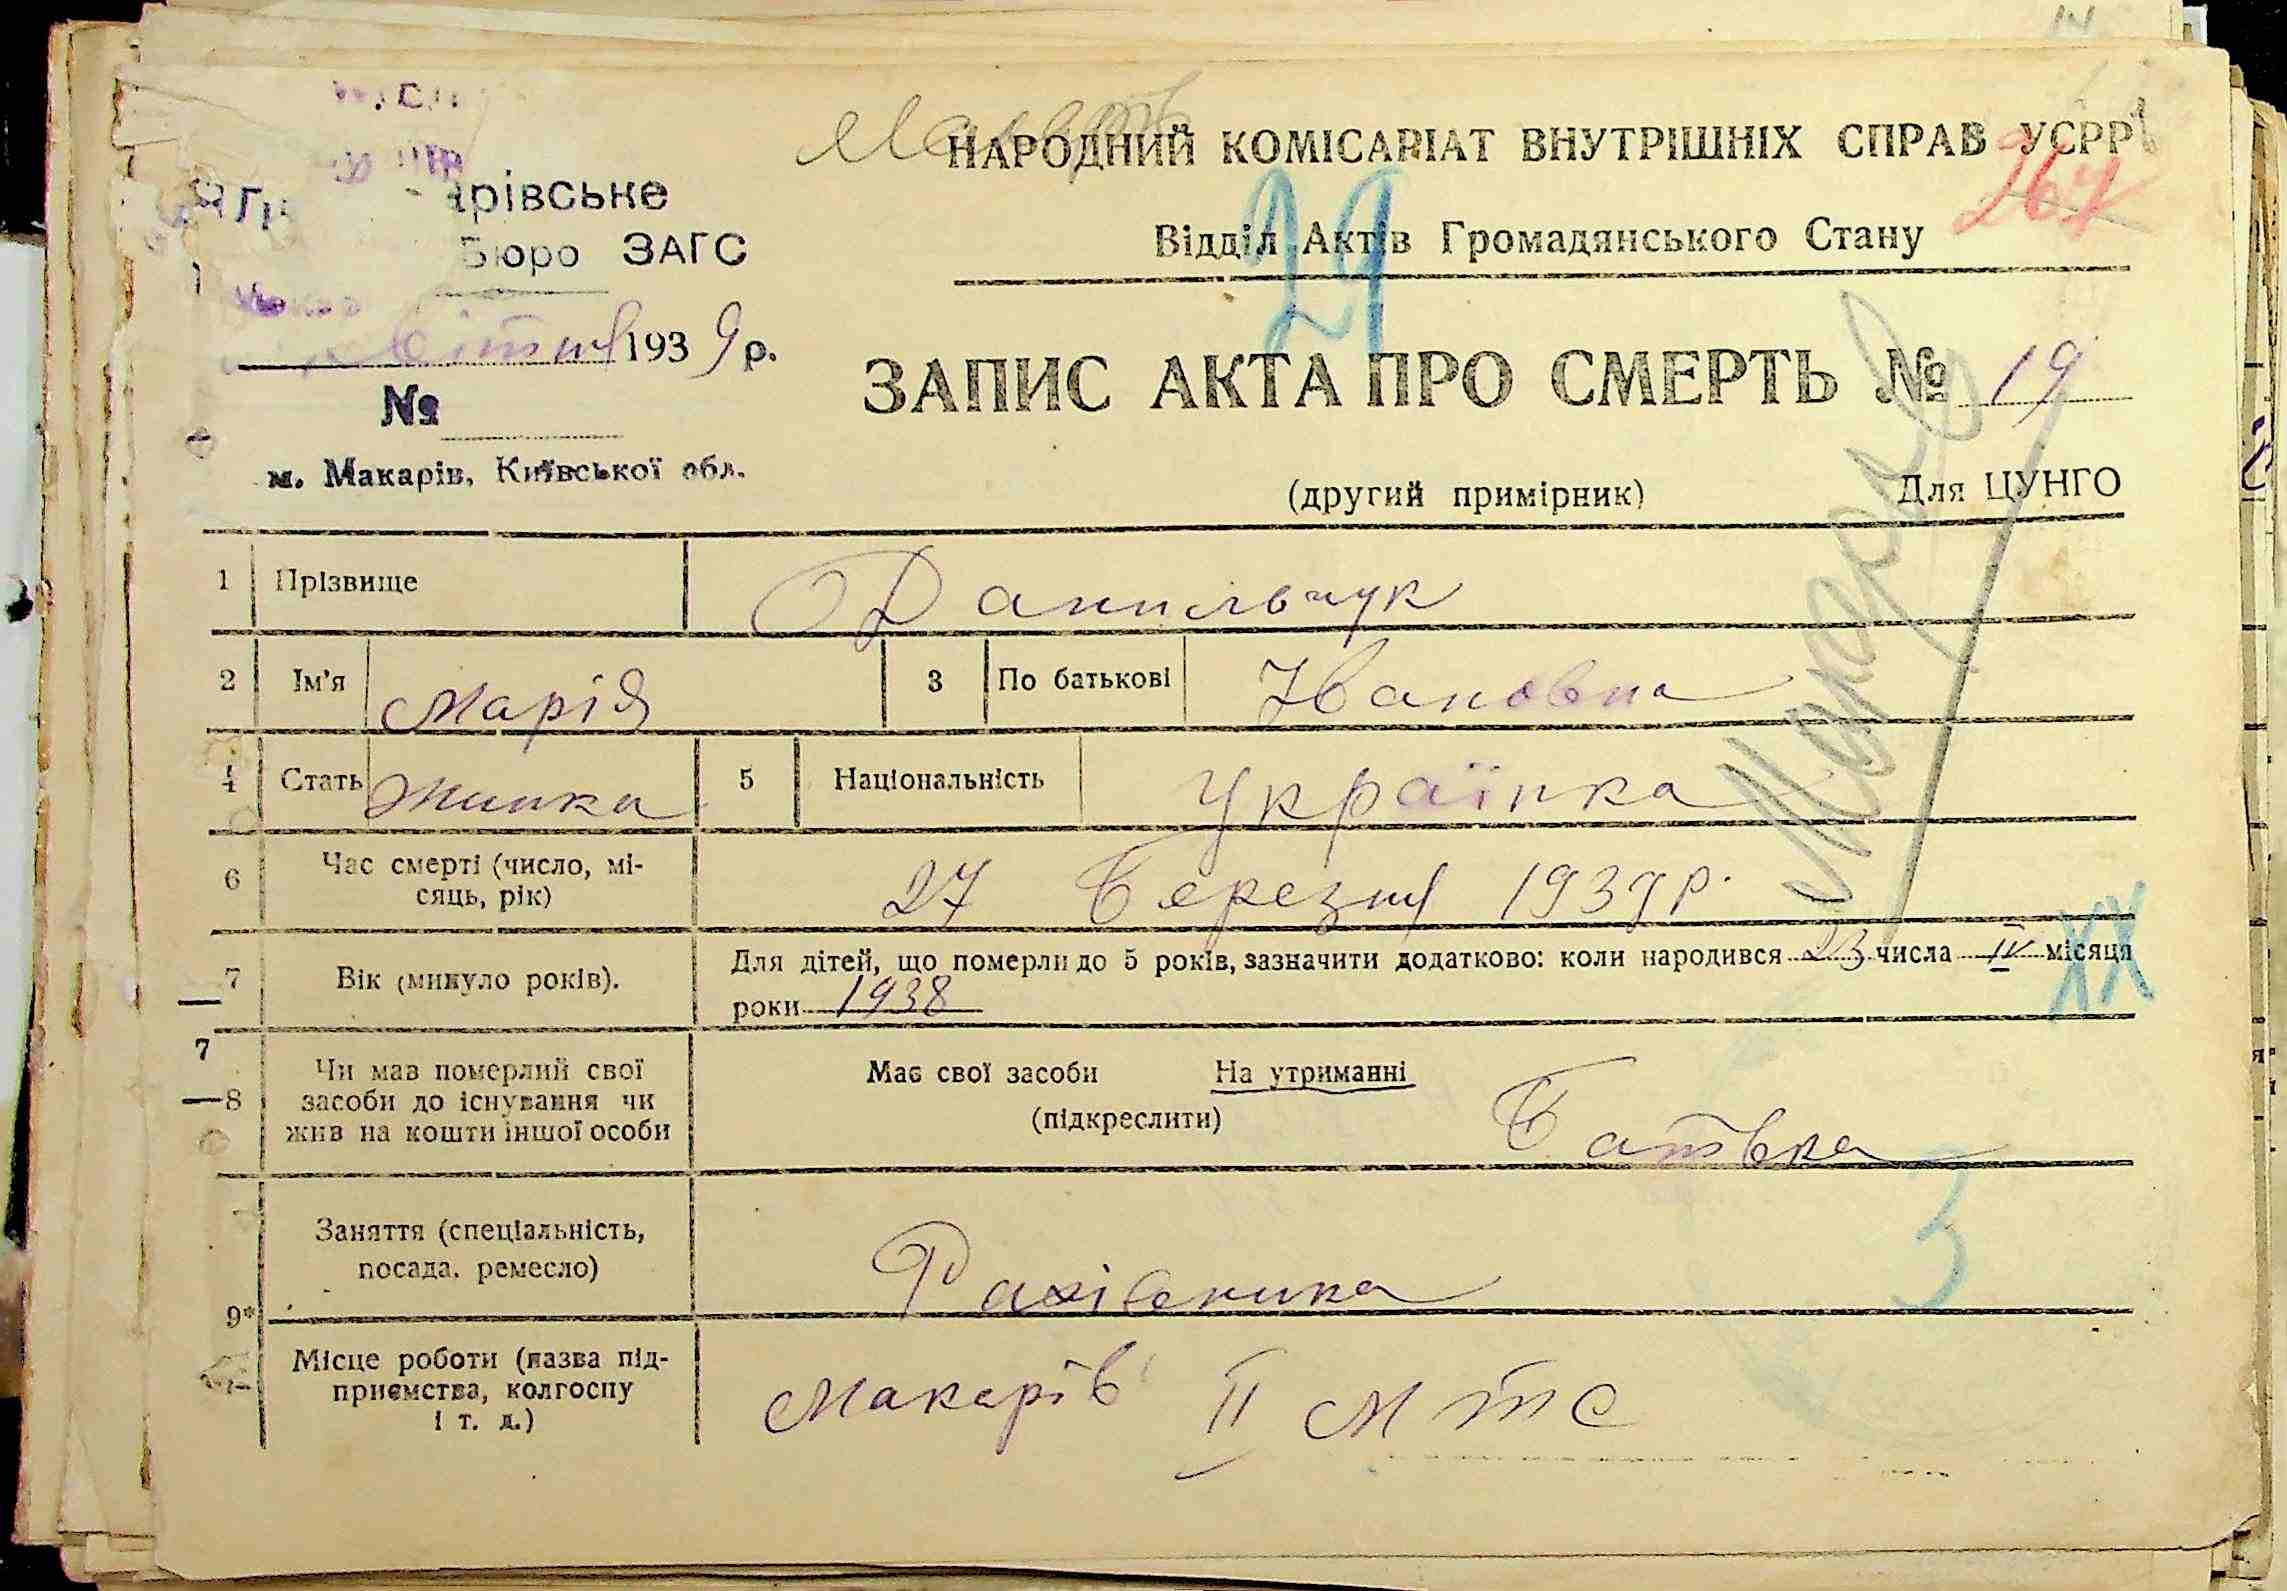 Макарів
НАРОДНИЙ КОМІСАРІАТ ВНУТРІШНІХ СПРАВ УСРР
264
арівське
Бюро ЗАГС
Відділ Актів Громадянського Стану
29
квітня 1939 р.
ЗАПИС АКТА ПРО СМЕРТЬ № 19
№
м. Макарів, Київської обл.
(другий примірник) Для ЦУНГО
Макарів
1 Прізвище Данильчук
2 Ім'я Марія 3 По батькові Івановна
4 Стать Жинка 5 Національність Українка
6 Час смерті (число, мі-
сяць, рік) 27 Березня 1939 р.
7 Вік (минуло років). Для дітей, що померли до 5 років, зазначити додатково: коли народився 23 числа IV місяця
роки 1938
XX
7
8 Чи мав померлий свої
засоби до існування чи
жив на кошти іншої особи
Має свої засоби На утриманні
(підкреслити) Батька
3
Заняття (спеціальність,
посада, ремесло) Рахівника
9*
Місце роботи (назва під-
приємства, колгоспу
і т. д.) Макарів II МТС